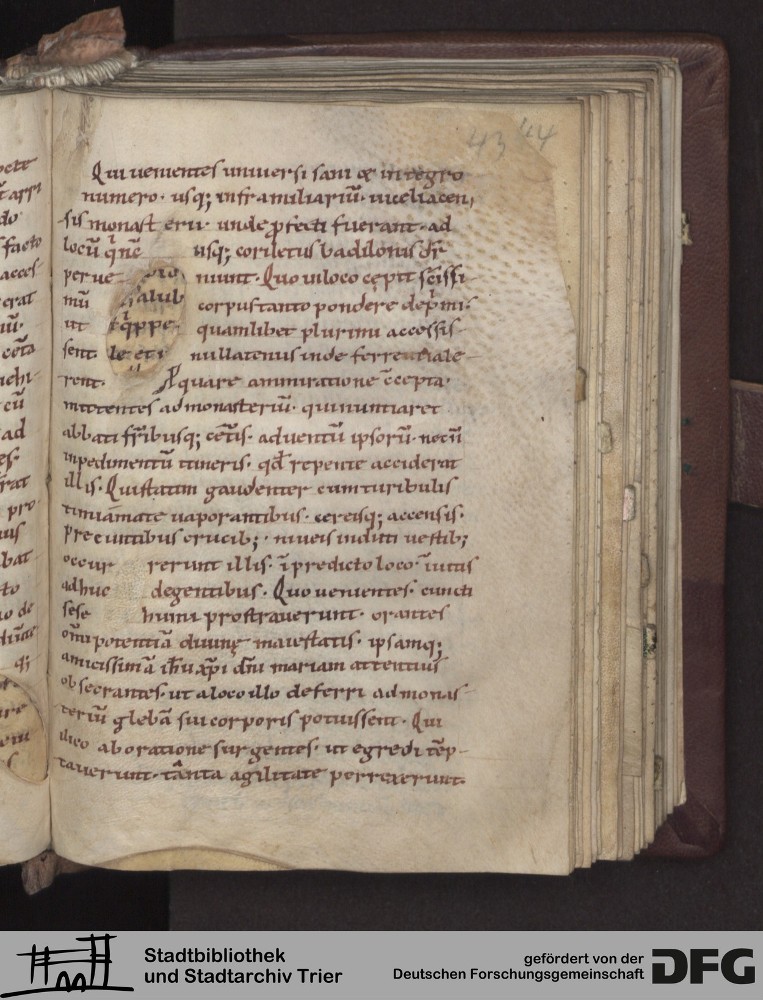 43 44
Qui uenientes uniuersi sani & integro
numero· usq; infra miliariū· uiceliacen,
sis monast erii· unde ꝓfecti fuerant· ad
locū q̄ nc̄ usq; coriletus badilonis dr̄
perue niunt· Quo in loco cępit sc̄issi
mū corpus tanto pondere dep̄mi·
ut quamlibet plurimi accessis
sent· nullatenus inde ferre uale
rent· Aquare ammiratione c̄cepta·
mittentes ad monasteriū· qui nuntiaret
abbati fr̄ibusq; cet̄is· aduentū ipsorū· necn̄
inpedimentū itineris· qd̄ repente acciderat
illis· Qui statim gaudenter cum turibulis
timiamate uaporantibus· cereisq; accensis·
precuntibus crucib; · niueis induti uestib;
occur rerunt illis· ī predicto loco· īuitis
adhuc degentibus· Quo uenientes· cuncti
sese humi prostrauerunt· orantes
om̄ipotentiā diuinę maiestatis· ipsamq;
amicissimā ih̄u xp̄i dn̄i mariam attentius
obsecrantes· ut a loco illo deferri ad monas
teriū glebā sui corporis potuissent· Qui
ilico ab oratione surgentes· ut egredi tēp
tauerunt· tanta agilitate perrexerunt·
Stadtbibliothek
und Stadtarchiv Trier
gefördert von der
Deutschen Forschungsgemeinschaft
DFG